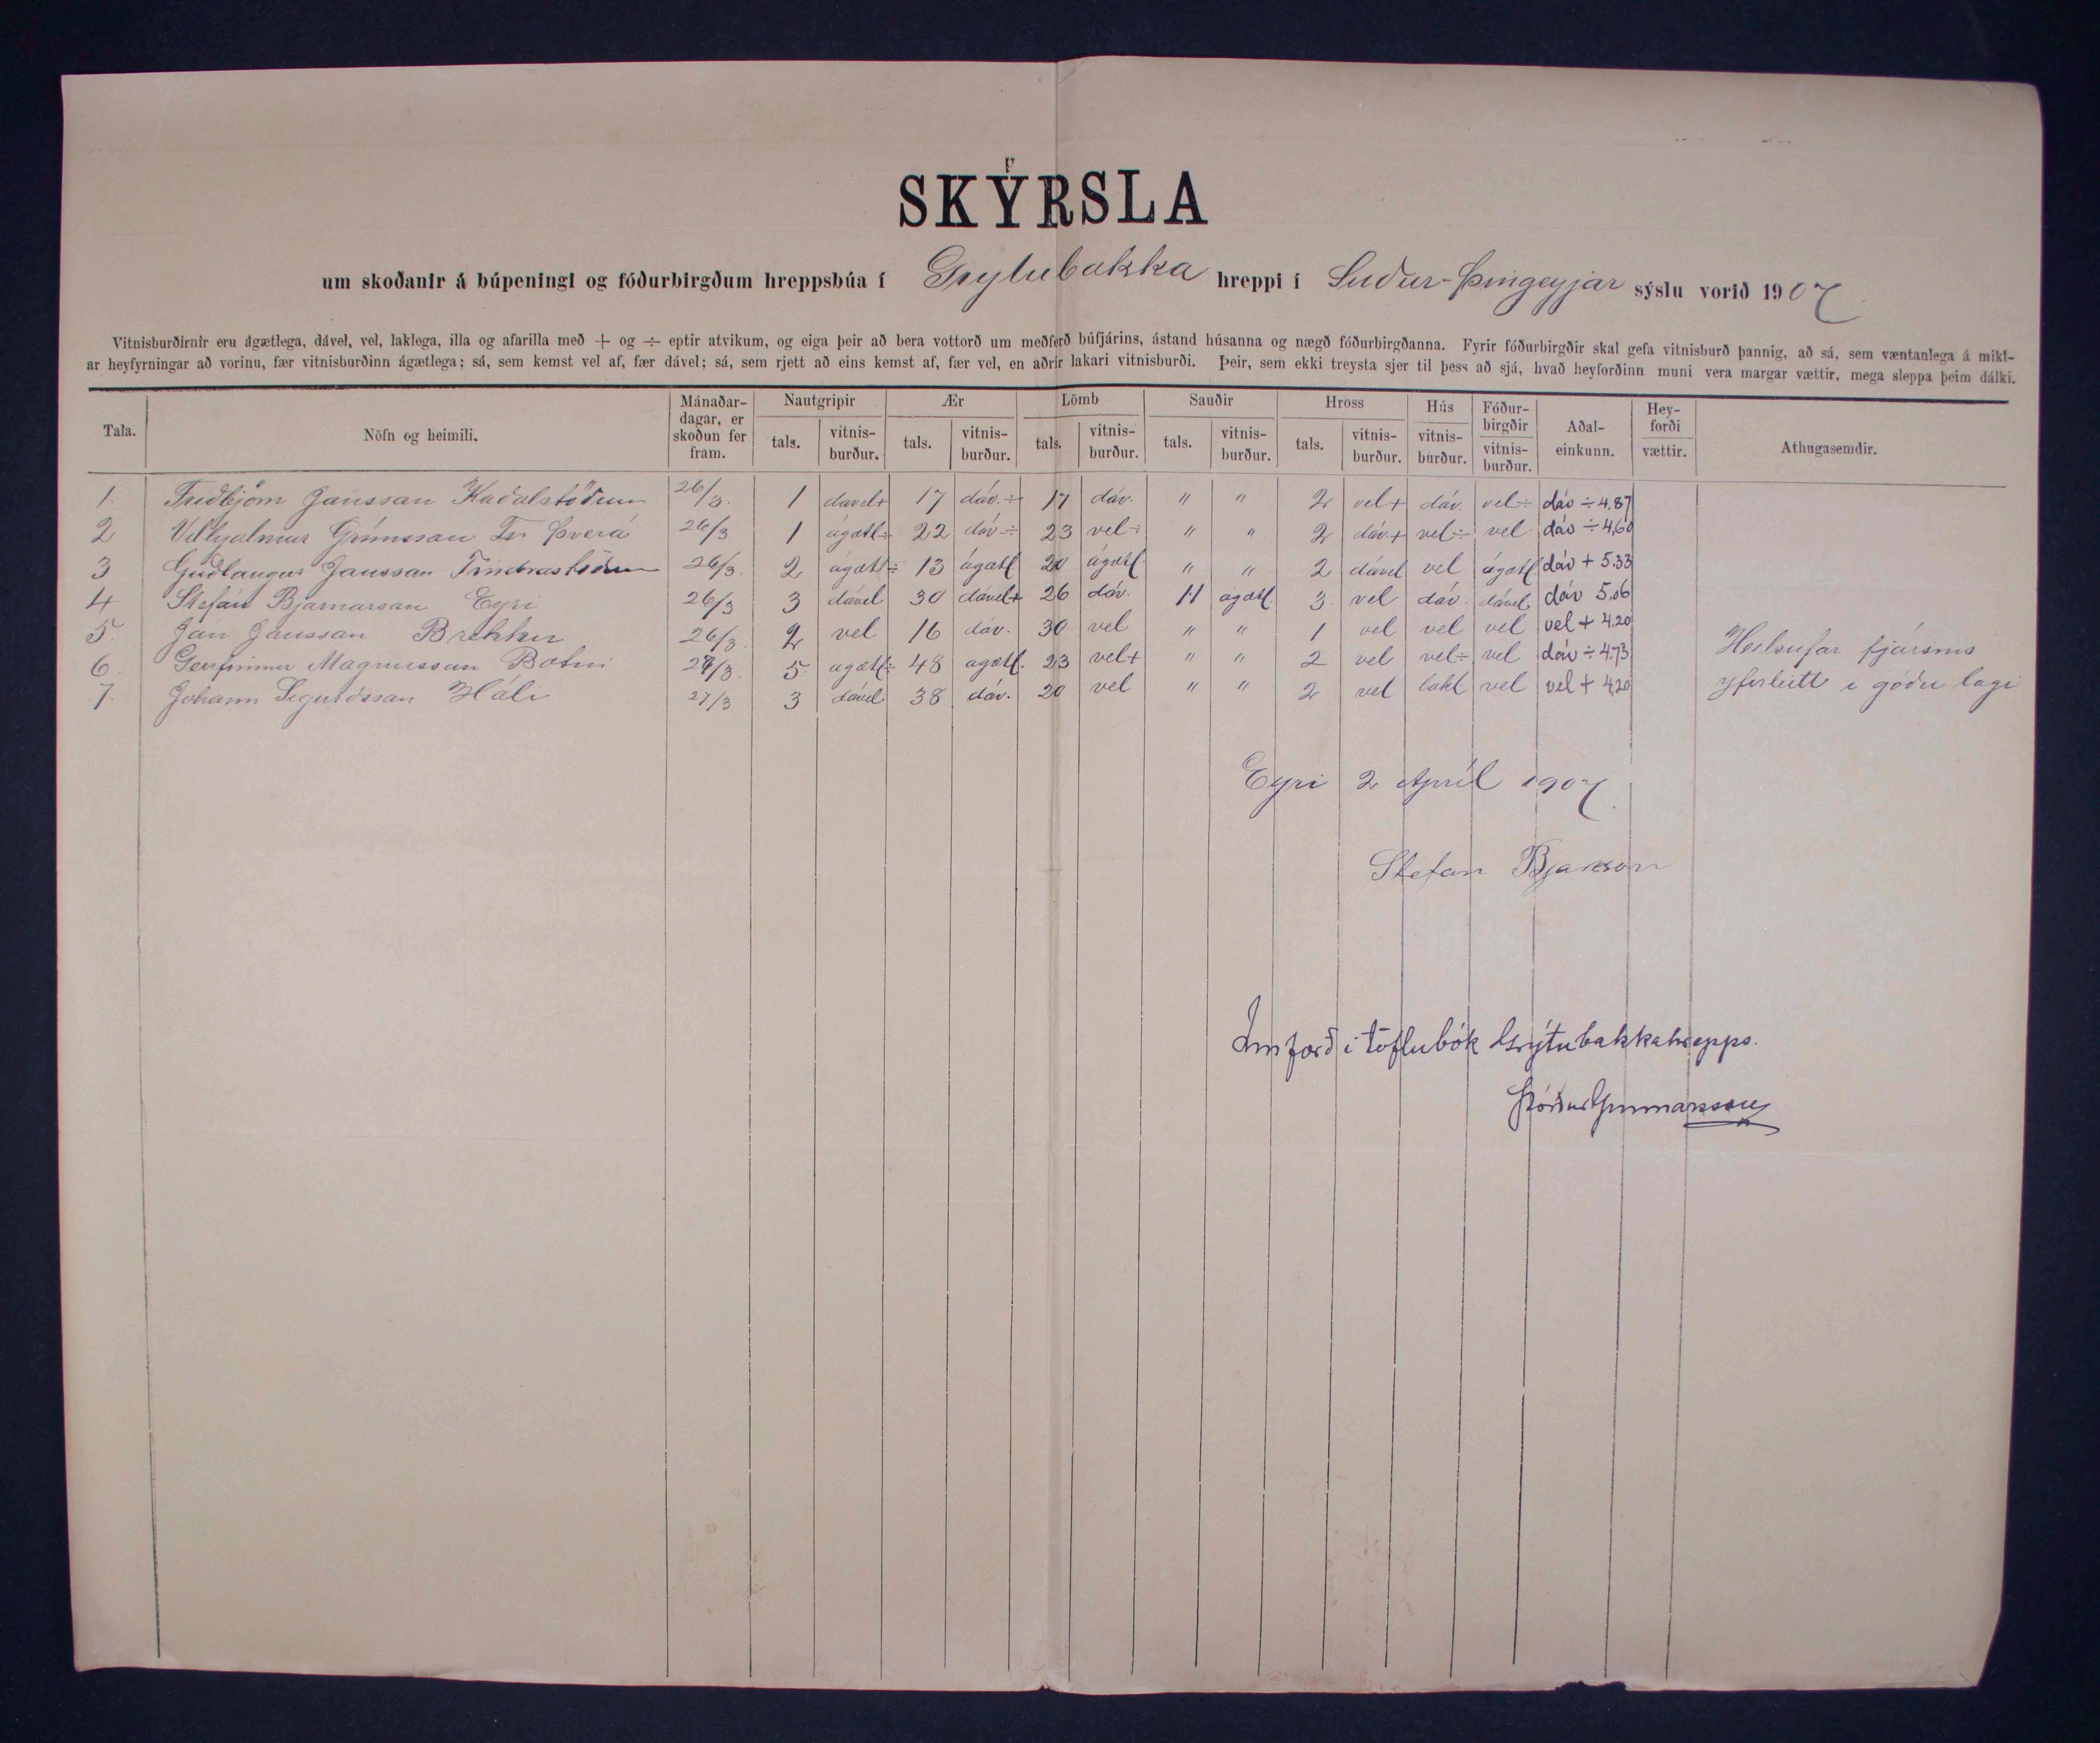 SKÝRSLA
um skoðanir á búpeningi og fóðurbirgðum hreppsbúa í Grytubakka hreppi í Suður-Þingeyjar sýslu vorið 1907
Vitnisburðirnir eru ágætlega, dável, vel, laklega, illa og afarilla með + og ÷ eptir atvikum, og eiga þeir að bera vottorð um meðferð búfjárins, ástand húsanna og nægð fóðurbirgðanna. Fyrir fóðurbirgðir skal gefa vitnisburð þannig, að sá, sem væntanlega á mikl-
ar heyfyrningar að vorinu, fær vitnisburðinn ágætlega; sá, sem kemst vel af, fær dável; sá, sem rjett að eins kemst af, fær vel, en aðrir lakari vitnisburði. Þeir, sem ekki treysta sjer til þess að sjá, hvað heyforðinn muni vera margar vættir, mega sleppa þeim dálki.
Tala. Nöfn og heimili. Mánaðar-dagar, er skoðun fer fram. Nautgripir tals. vitnis-burður. Ær tals. vitnis-burður. Lömb tals. vitnis-burður. Sauðir tals. vitnis-burður. Hross tals. vitnis-burður. Hús vitnis-burður. Fóður-birgðir vitnis-burður. Aðal-einkunn. Hey-forði vættir. Athugasemdir.
1. Friðbjörn Jónsson Kaðalstöðum 26/3. 1 davel+ 17 dáv.÷ 17 dáv. " " 2 vel+ dáv. vel÷ dáv ÷ 4.87
2 Vilhjalmur Grímsson Þverá 26/3 1 ágætl÷ 22 dáv÷ 23 vel÷ " " 2 dáv.+ vel÷ vel dáv ÷ 4,60
3 Guðlaugur Jónsson Tindrastöðum 26/3. 2 ágætl÷ 13 ágætl 20 ágætl " " 2 dável vel ágætl dáv + 5.33
4 Stefán Bjarnarson Eyri 26/3 3 dável 30 dável+ 26 dáv. 11 ágætl 3. vel dáv. dável. dáv 5,06
5. Jón Jónsson Brekku 26/3 2 vel 16 dáv. 30 vel " " 1 vel vel vel vel + 4.20
6. Geirfinnur Magnusson Botni 27/3. 5. agætl÷ 48 agætl. 23 vel+ " " 2 vel vel÷ vel dáv ÷ 4.73 Heilsufar fjársins
7. Johann Sigurðsson Háli 27/3 3 dável 38 dáv. 20 vel " " 2 vel lakl vel vel + 4,20 yfirleitt i góðu lagi
Eyri 2 Apríl 1907.
Stefan Bjarnson
Innfærð i töflubók Grýtubakkahrepps.
Þórður Gunnarsson